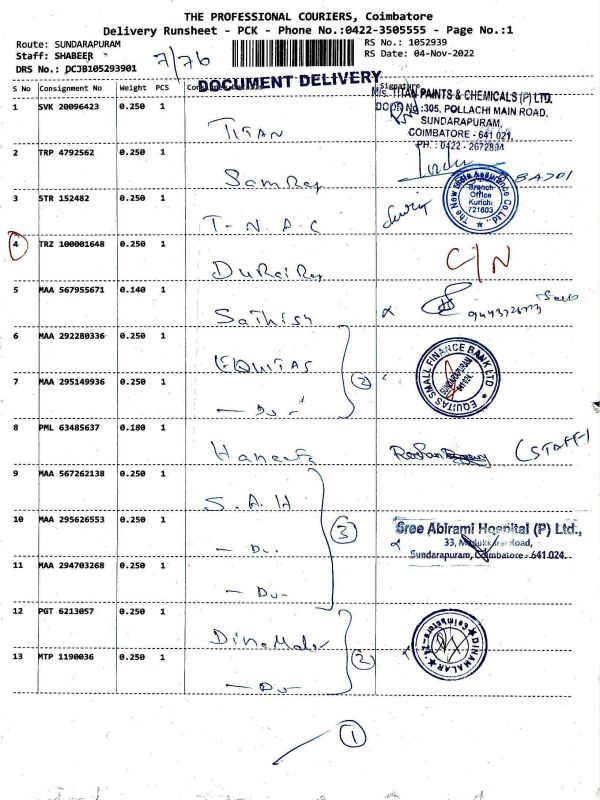 THE PROFESSIONAL COURIERS, Coimbatore
Delivery Runsheet - PCK - Phone No.:0422-3505555 - Page No.:1
Route: SUNDARAPURAM
RS No.: 1052939
Staff: SHABEER
RS Date: 04-Nov-2022
DRS No.: DCJB105293901
7/76
DOCUMENT DELIVERY
S No Consignment No Weight PCS Signature
M/s. TITAN PAINTS & CHEMICALS (P) LTD.
DOOR No :305, POLLACHI MAIN ROAD,
SUNDARAPURAM,
COIMBATORE - 641 021.
PH. : 0422 - 2672894
1 SVK 20096423 0.250 1
TITAN
2 TRP 4792562 0.250 1
Sam Raj
The New India Assurance Co Ltd
Branch
Office
Kurichi
721603
3 STR 152482 0.250 1
T-N.A.C
4 TRZ 100001648 0.250 1
C/N
Durai Raj
5 MAA 567955671 0.140 1
Sathish
6 MAA 292280336 0.250 1
EQUITAS
EQUITAS SMALL FINANCE BANK LTD
SUNDARAPURAM
7 MAA 295149936 0.250 1
2
— Do -
8 PML 63485637 0.180 1
Haneefa
Roshan
(STAFF)
9 MAA 567262138 0.250 1
S.A.H
10 MAA 295626553 0.250 1
3
Sree Abirami Hospital (P) Ltd.,
33, Madukkarai Road,
Sundarapuram, Coimbatore - 641 024.
— Do.
11 MAA 294703268 0.250 1
— Do -
12 PGT 6213057 0.250 1
Dinamalar
DINAMALAR
Coimbatore-21
13 MTP 1190036 0.250 1
2
— Do -
1